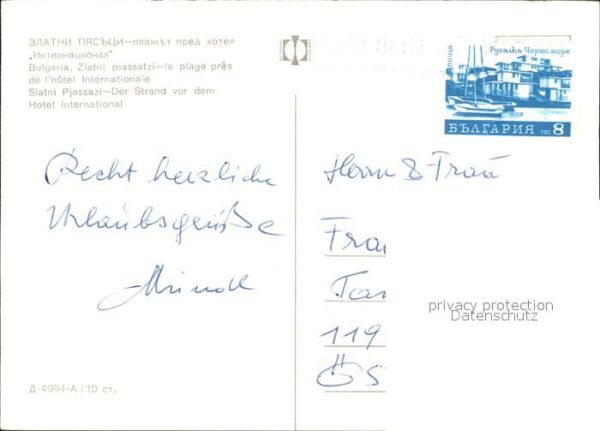 ЗЛАТНИ ПЯСЪЦИ—плажът пред хотел
„Интернационал"
Bulgaria, Zlatni piassatzi—la plage près
de l'hôtel Internationale
Slatni Pjassazi—Der Strand vor dem
Hotel International
Русалка Черноморе
поща
БЪЛГАРИЯ ст. 8
Recht herzliche
Urlaubsgrüße
Herrn & Frau
Fra
Tas
119
ÖS
privacy protection
Datenschutz
Д-4994-А / 10 ст.